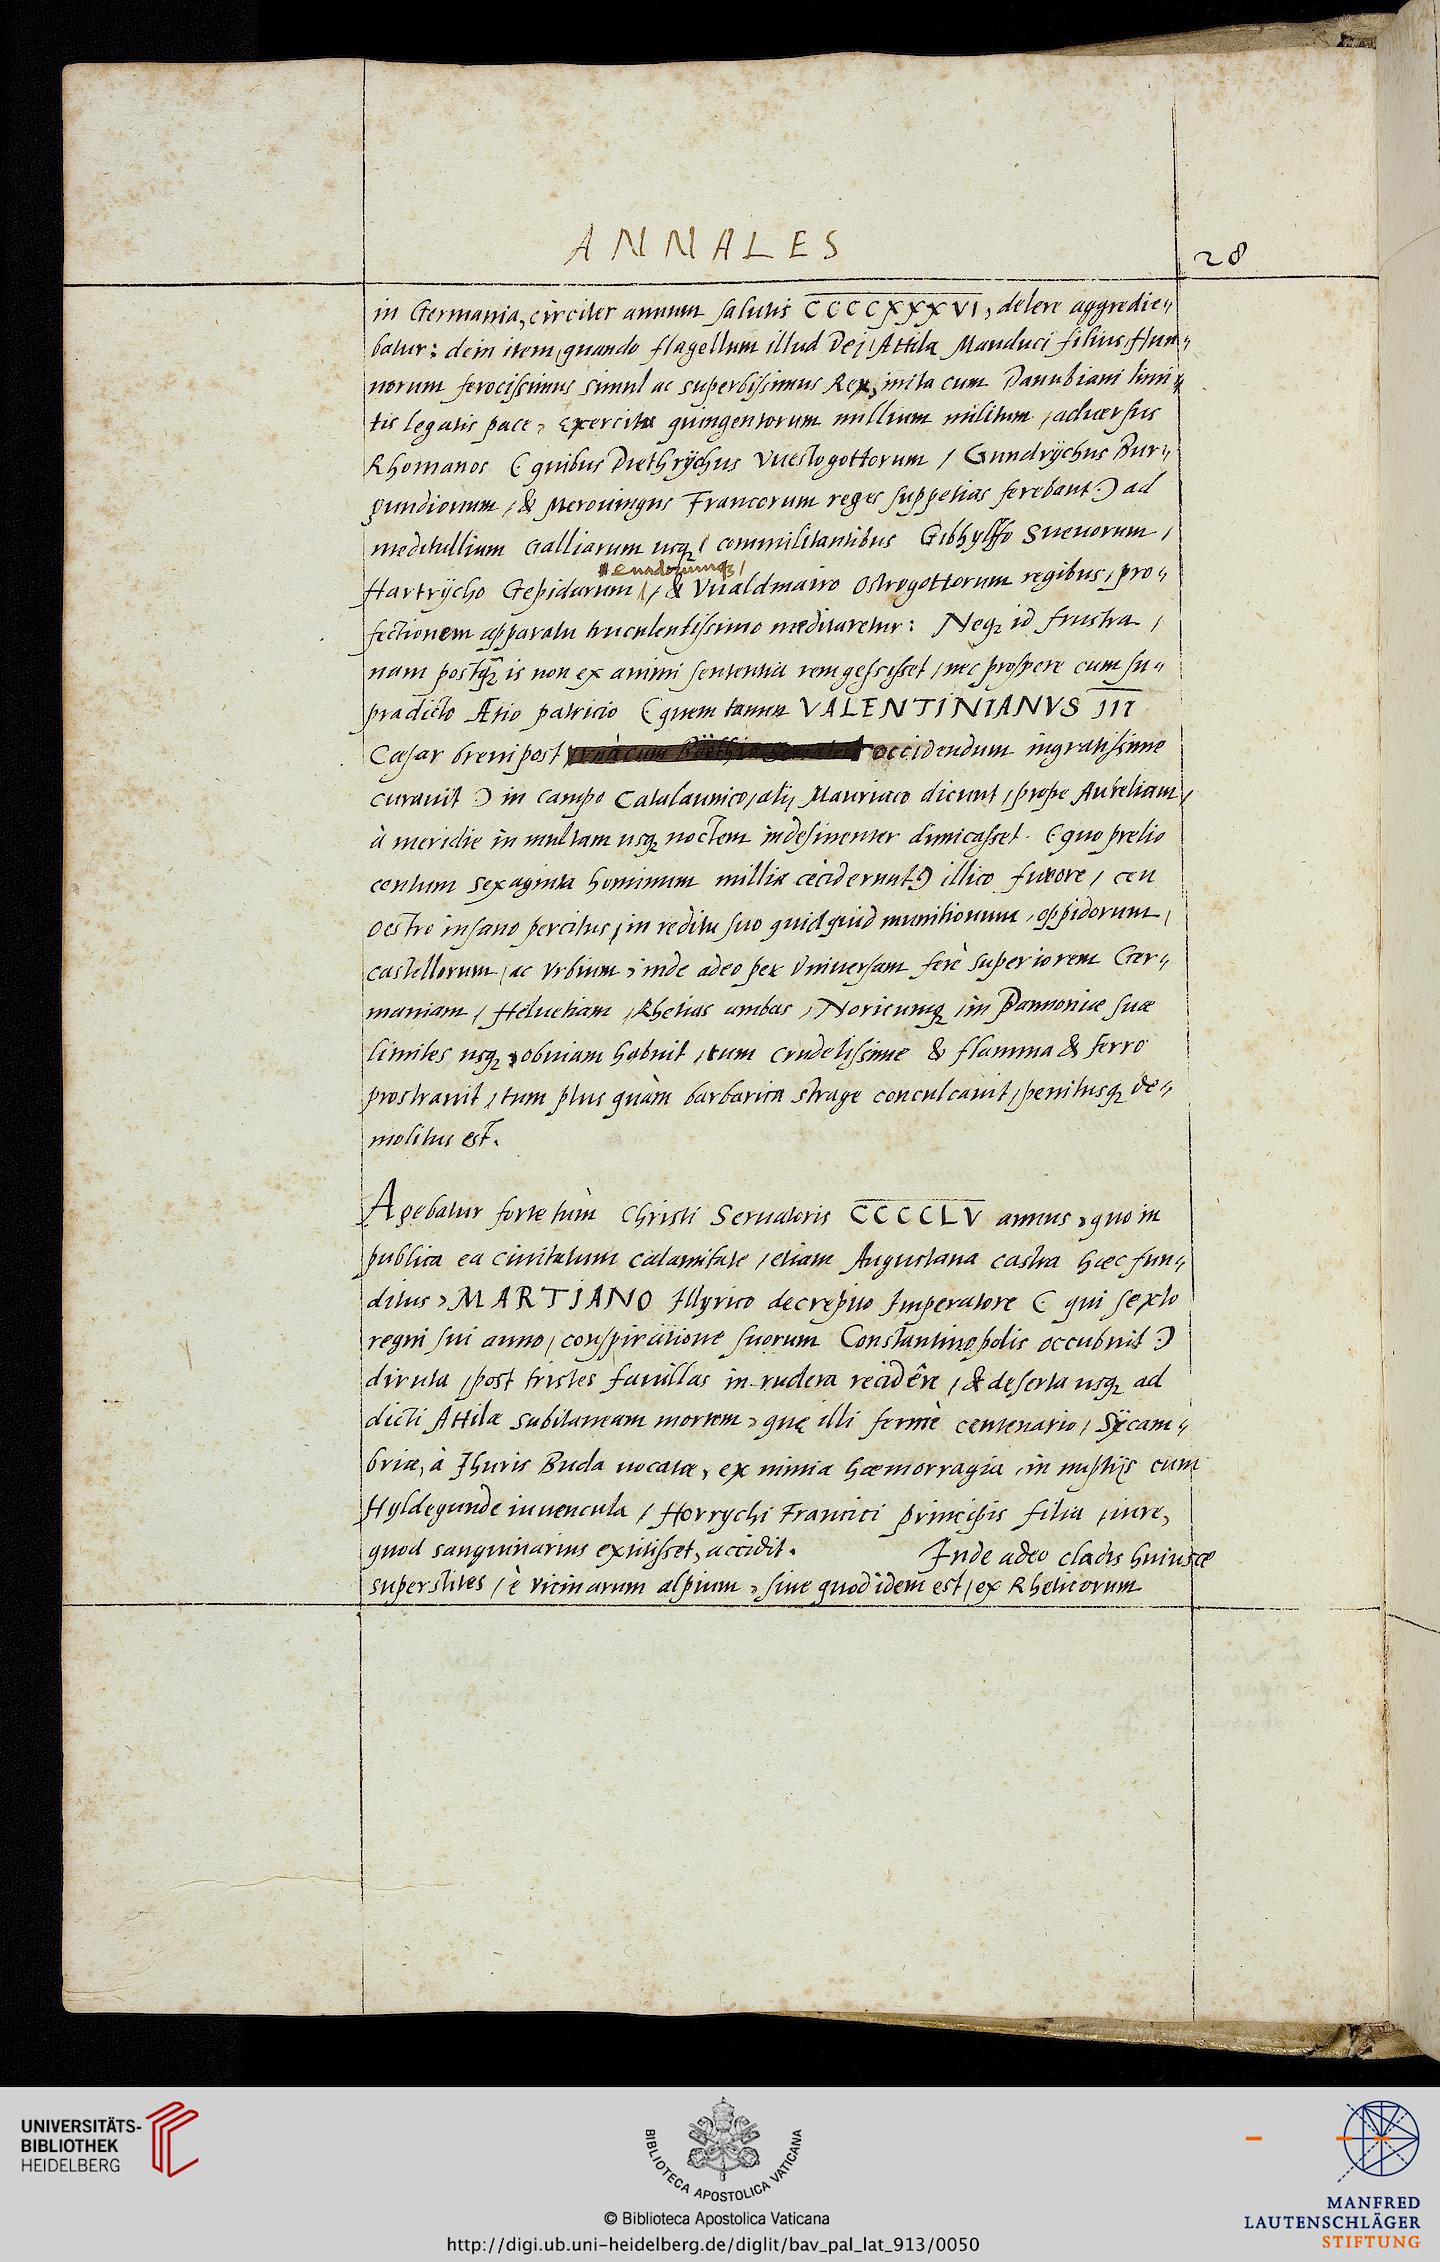 ANNALES
28
in Germania, circiter annum salutis CCCCXXXVI, delere aggredie„
batur: dein item, quando flagellum illud Dej, Attila Manduci filius, Hun„
norum ferocissimus simul ac superbissimus Rex, inita cum Danubiani limi„
tis legatis pace, exercitu quingentorum millium militum, aduersus
Rhomanos ( quibus Diethrÿchus Vuestogottorum / Gundrÿchus Bur„
gundionum, & Merouingus Francorum reges suppetias ferebant ) ad
meditullium Galliarum usqꝫ / commilitantibus Gibhylffo Sueuorum,
Hartrÿcho Gepidarum /, & Vualdmairo Ostrogottorum regibus, pro„
fectionem apparatu truculentissimo meditaretur: Neqꝫ id frustra,
nam postqꝫ is non ex animi sententia rem gessisset, nec prospere cum su„
pradicto Ætio patricio ( quem tamen VALENTINIANVS III
Cæsar breui post occidendum ingratissime
curauit ) in campo Catalaunico, alij Mauriaco dicunt, prope Aureliam,
à meridie in multam usqꝫ noctem indesinenter dimicasset. ( quo prelio
centum sexaginta hominum millia cecidernut ) illico furore, ceu
oestro insano percitus, in reditu suo quidquid munitionum, oppidorum,
castellorum, ac vrbium, inde adeo per Vniuersam ferè superiorem Ger„
maniam, Heluetiam, Rhetias ambas, Noricumqꝫ, in Pannoniæ suæ
limites usqꝫ obuiam habuit, tum crudelissime & flamma & ferro
prostrauit, tum plus quàm barbarica strage conculcauit, penitusqꝫ de„
molitus est.
Agebatur forte tùm Christi Seruatoris CCCCLV annus, quo in
publica ea ciuitatum calamitate, etiam Augustana castra hæc fun„
ditus, MARTIANO Illyrico decrepito Imperatore ( qui sexto
regni sui anno, conspiratione suorum Constantinopolis occubuit )
diruta, post tristes fauillas in rudera recidêre, & deserta usqꝫ ad
dicti Attilæ subitaneam mortem, quę illi fermè centenario, Sÿcam„
briæ, à Thuris Buda uocatæ, ex nimia hæmorragia, in nuptijs cum
Hyldegunde iuuencula, Horrychi Francici principis filia, iure,
quod sanguinarius extitisset, accidit. Inde adeo cladis huiusce
superstites, è vicinarum alpium, siue quod idem est, ex Rheticorum
UNIVERSITÄTS-
BIBLIOTHEK
HEIDELBERG
BIBLIOTECA APOSTOLICA VATICANA
© Biblioteca Apostolica Vaticana
http://digi.ub.uni-heidelberg.de/diglit/bav_pal_lat_913/0050
MANFRED
LAUTENSCHLÄGER
STIFTUNG